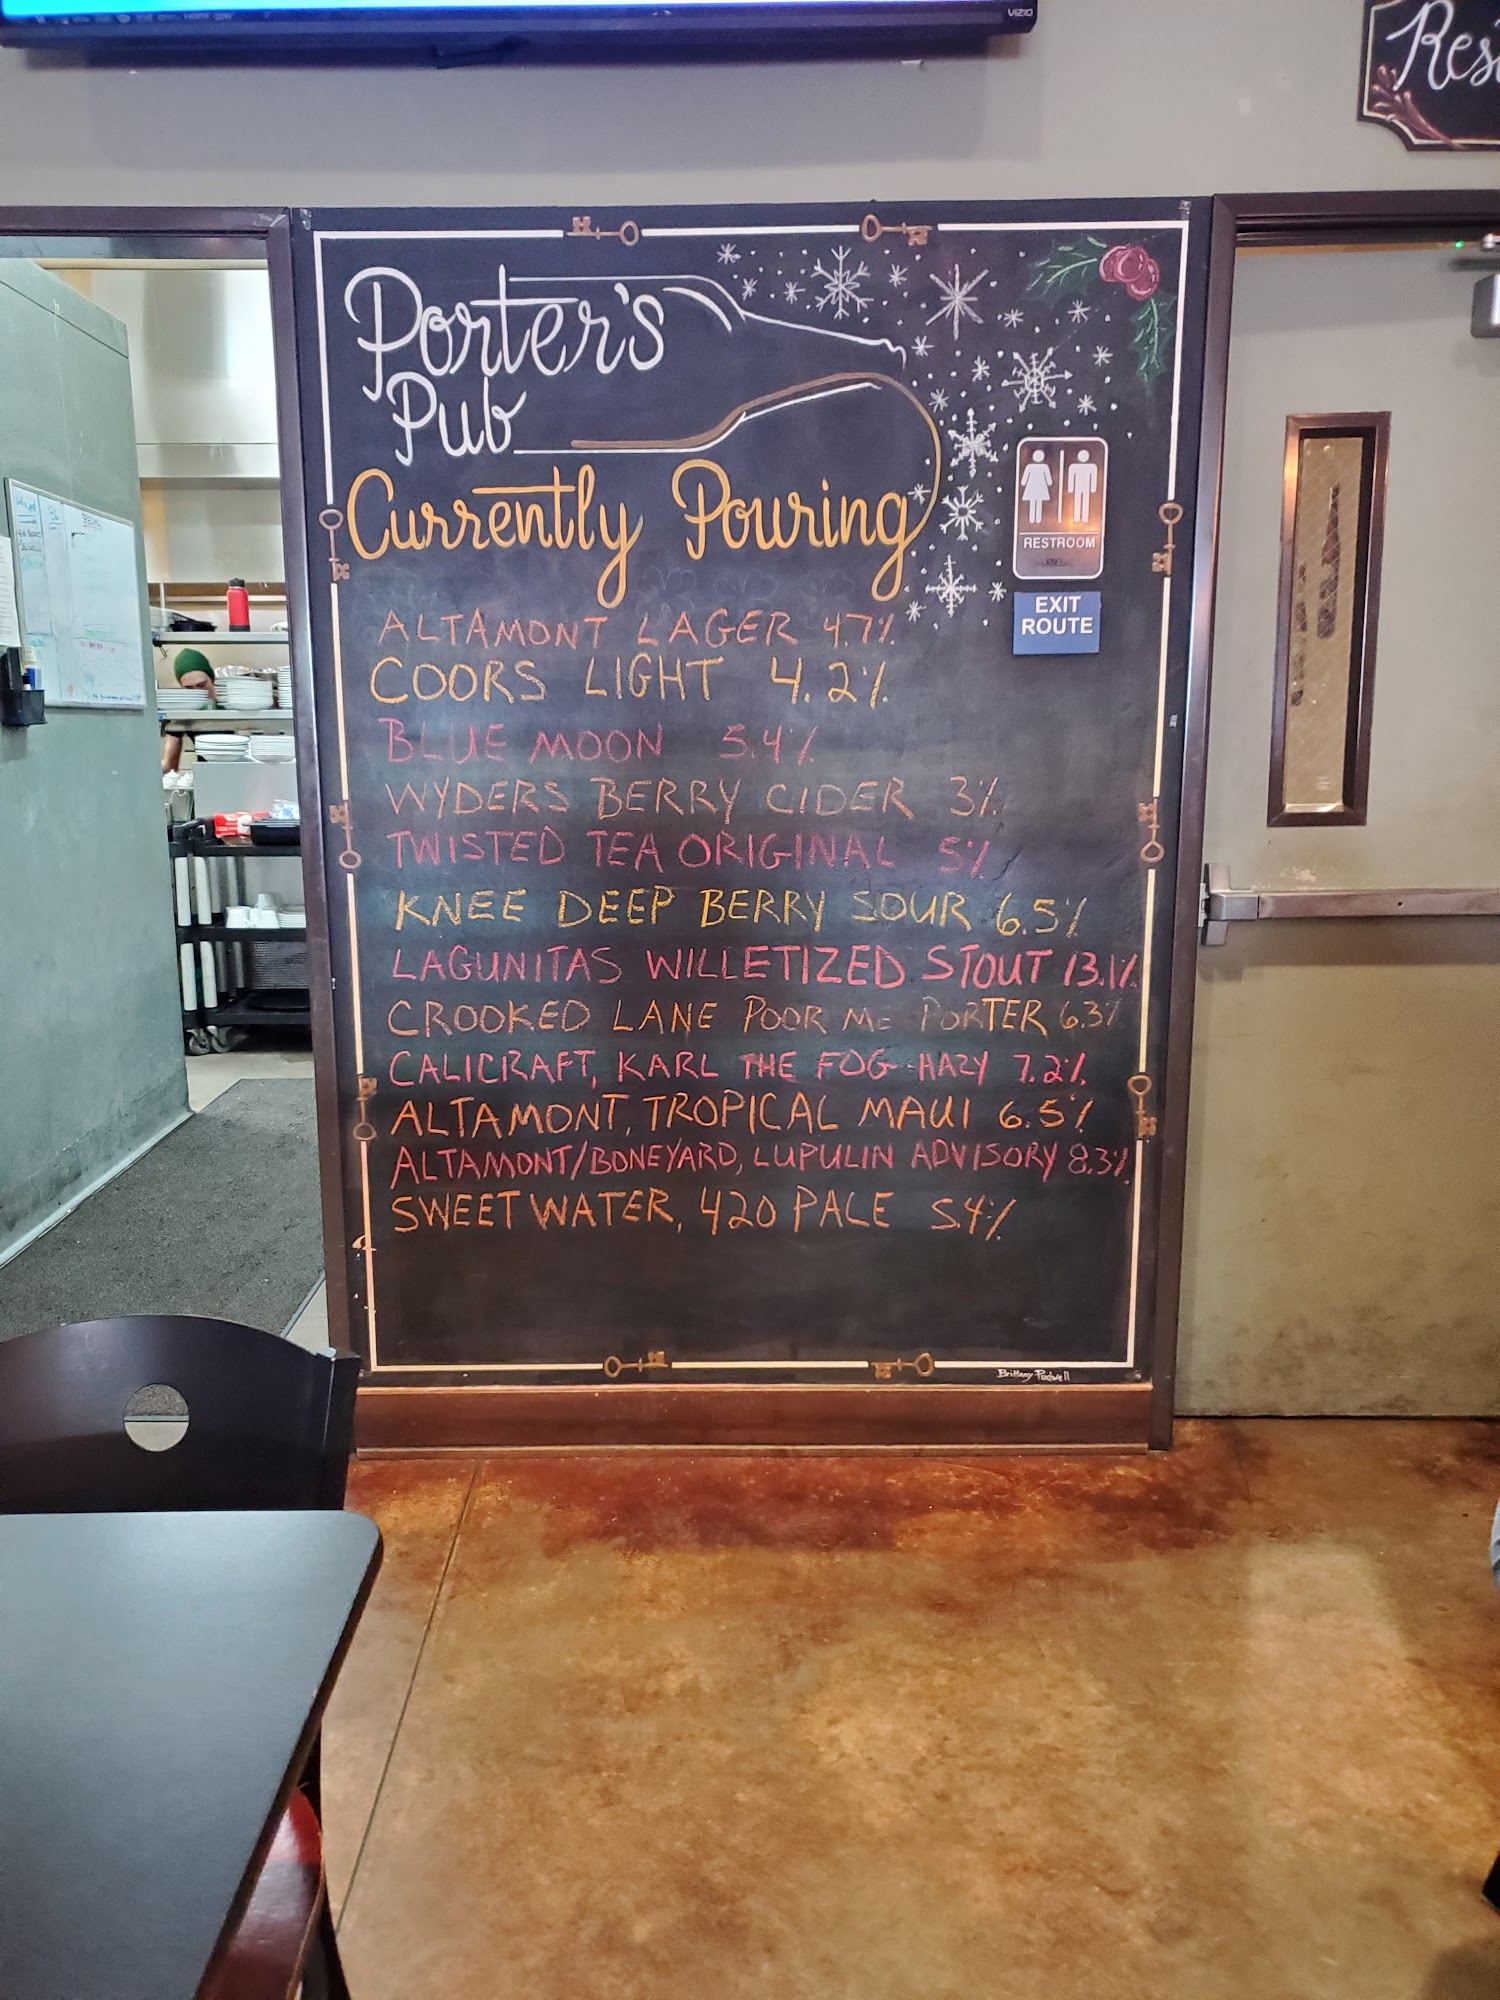 VIZIO
Porter's
Pub
Currently Pouring
RESTROOM
EXIT
ROUTE
ALTAMONT LAGER 4.7%
COORS LIGHT 4.2%
BLUE MOON 5.4%
WYDERS BERRY CIDER 3%
TWISTED TEA ORIGINAL 5%
KNEE DEEP BERRY SOUR 6.5%
LAGUNITAS WILLETIZED STOUT 13.1%
CROOKED LANE POOR Me PORTER 6.3%
CALICRAFT, KARL THE FOG HAZY 7.2%
ALTAMONT, TROPICAL MAUI 6.5%
ALTAMONT/BONEYARD, LUPULIN ADVISORY 8.3%
SWEET WATER, 420 PALE 5.4%
Brittany Pudwell